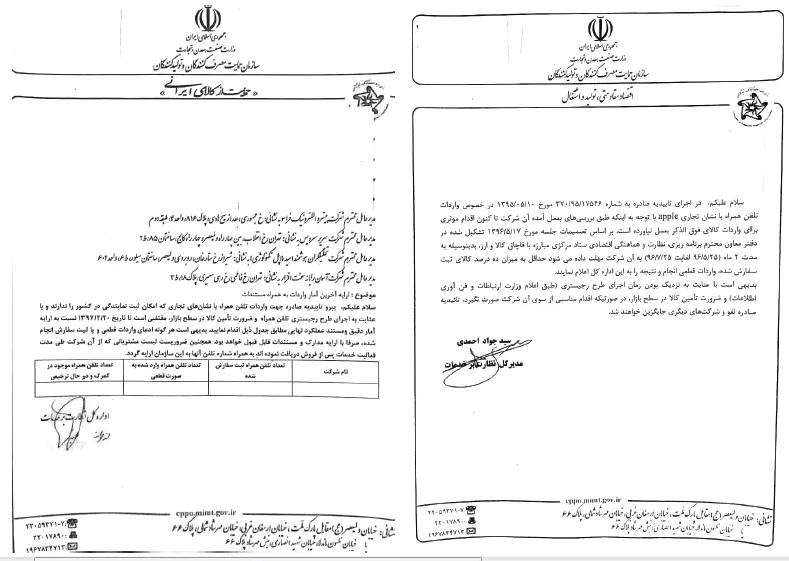 جمهوری اسلامی ایران
وزارت صنعت، معدن و تجارت
سازمان حمایت مصرف کنندگان و تولیدکنندگان
اقتصاد مقاومتی، تولید و اشتغال
سلام علیکم، در اجرای تاییدیه صادره به شماره ۳۷۰/۹۵/۱۷۵۴۶ مورخ ۱۳۹۵/۰۵/۱۰ در خصوص واردات
تلفن همراه با نشان تجاری apple با توجه به اینکه طبق بررسی‌های بعمل آمده آن شرکت تا کنون اقدام موثری
برای واردات کالای فوق الذکر بعمل نیاورده است، بر اساس تصمیمات جلسه مورخ ۱۳۹۶/۵/۱۷ تشکیل شده در
دفتر معاون محترم برنامه ریزی نظارت و هماهنگی اقتصادی ستاد مرکزی مبارزه با قاچاق کالا و ارز، بدینوسیله به
مدت ۲ ماه (۹۶/۵/۲۵ لغایت ۹۶/۷/۲۵) به آن شرکت مهلت داده می شود حداقل به میزان ده درصد کالای ثبت
سفارش شده، واردات قطعی انجام و نتیجه را به این اداره کل اعلام نمایند.
بدیهی است با عنایت به نزدیک بودن زمان اجرای طرح رجیستری (طبق اعلام وزارت ارتباطات و فن آوری
اطلاعات) و ضرورت تأمین کالا در سطح بازار، در صورتیکه اقدام مناسبی از سوی آن شرکت صورت نگیرد، تائیدیه
صادره لغو و شرکت‌های دیگری جایگزین خواهند شد.
سید جواد احمدی
مدیر کل نظارت بر خدمات
cppo.mimt.gov.ir
نشانی: خیابان ولیعصر (عج) مقابل پارک ملت، خیابان ارمغان غربی، خیابان مهرشاد شمالی، پلاک ۶۶
۲۲۰۵۹۳۷۱-۷
۲۲۰۱۷۸۹۰
۱۹۶۷۸۳۴۷۱۳
جمهوری اسلامی ایران
وزارت صنعت، معدن و تجارت
سازمان حمایت مصرف کنندگان و تولیدکنندگان
«حمایت از کالای ایرانی»
موضوع: ارایه آخرین آمار واردات به همراه مستندات
سلام علیکم، پیرو تاییدیه صادره جهت واردات تلفن همراه با نشان‌های تجاری که امکان ثبت نمایندگی در کشور را ندارند، و با
عنایت به اجرای طرح رجیستری تلفن همراه و ضرورت تأمین کالا در سطح بازار، مقتضی است تا تاریخ ۱۳۹۷/۲/۲۰ نسبت به ارایه
آمار دقیق ومستند عملکرد نهایی مطابق جدول ذیل اقدام نمایید. بدیهی است هر گونه ادعای واردات قطعی و یا ثبت سفارش انجام
شده، صرفا با ارایه مدارک و مستندات قابل قبول خواهد بود. همچنین ضروریست لیست مشتریانی که از آن شرکت طی مدت
فعالیت خدمات پس از فروش دریافت نموده اند به همراه شماره تلفن آنها به این سازمان ارایه گردد.
نام شرکت
تعداد تلفن همراه ثبت سفارش شده
تعداد تلفن همراه وارد شده به صورت قطعی
تعداد تلفن همراه موجود در گمرک و در حال ترخیص
cppo.mimt.gov.ir
نشانی: خیابان ولیعصر (عج) مقابل پارک ملت، خیابان ارمغان غربی، خیابان مهرشاد شمالی، پلاک ۶۶
۲۲۰۵۹۳۷۱-۷
۲۲۰۱۷۸۹۰
۱۹۶۷۸۳۴۷۱۳